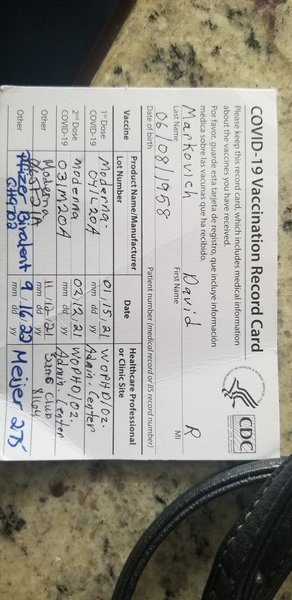 COVID-19 Vaccination Record Card
CDC
Please keep this record card, which includes medical information
about the vaccines you have received.
Por favor, guarde esta tarjeta de registro, que incluye información
médica sobre las vacunas que ha recibido.
Markovich David R
Last Name First Name MI
06/08/1958
Date of birth Patient number (medical record or IIS record number)
Vaccine Product Name/Manufacturer Lot Number Date Healthcare Professional or Clinic Site
1st Dose COVID-19 Moderna. 01/15/21 WOPHD/02.
041L20A mm dd yy Admin. Center
2nd Dose COVID-19 Moderna 02/12/21 WOPHD/02.
031M20A mm dd yy Admin. Center
Other Moderna 11/12/21 Sams Club
mm dd yy
Other Pfizer Bivalent 9/16/22 Meijer 275
mm dd yy